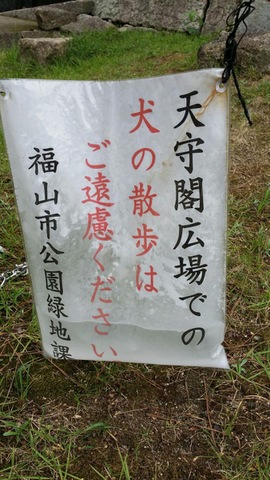 天守閣広場での
犬の散歩は
ご遠慮ください
福山市公園緑地課